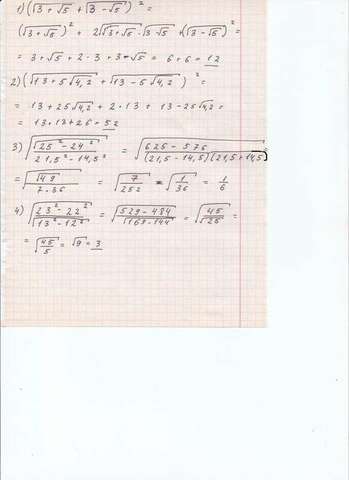 1) (√(3 + √5) + √(3 - √5))² =
(√(3 + √5))² + 2√(3 + √5 · 3 - √5) + (√(3 - √5))² =
= 3 + √5 + 2 · 3 + 3 - √5 = 6 + 6 = 12
2) (√(13 + 5√4,2) + √(13 - 5√4,2))² =
= 13 + 25√4,2 + 2 · 13 + 13 - 25√4,2 =
= 13 + 13 + 26 = 52
3) √((25² - 24²)/(21,5² - 14,5²)) = √((625 - 576)/((21,5 - 14,5)(21,5 + 14,5)))
= √(√49/(7 · 36)) = √(7/252) = √(1/36) = 1/6
4) √(√(23² - 22²)/√(13² - 12²)) = √(√(529 - 484)/√(169 - 144)) = √(√45/√25) =
= √(45/5) = √9 = 3